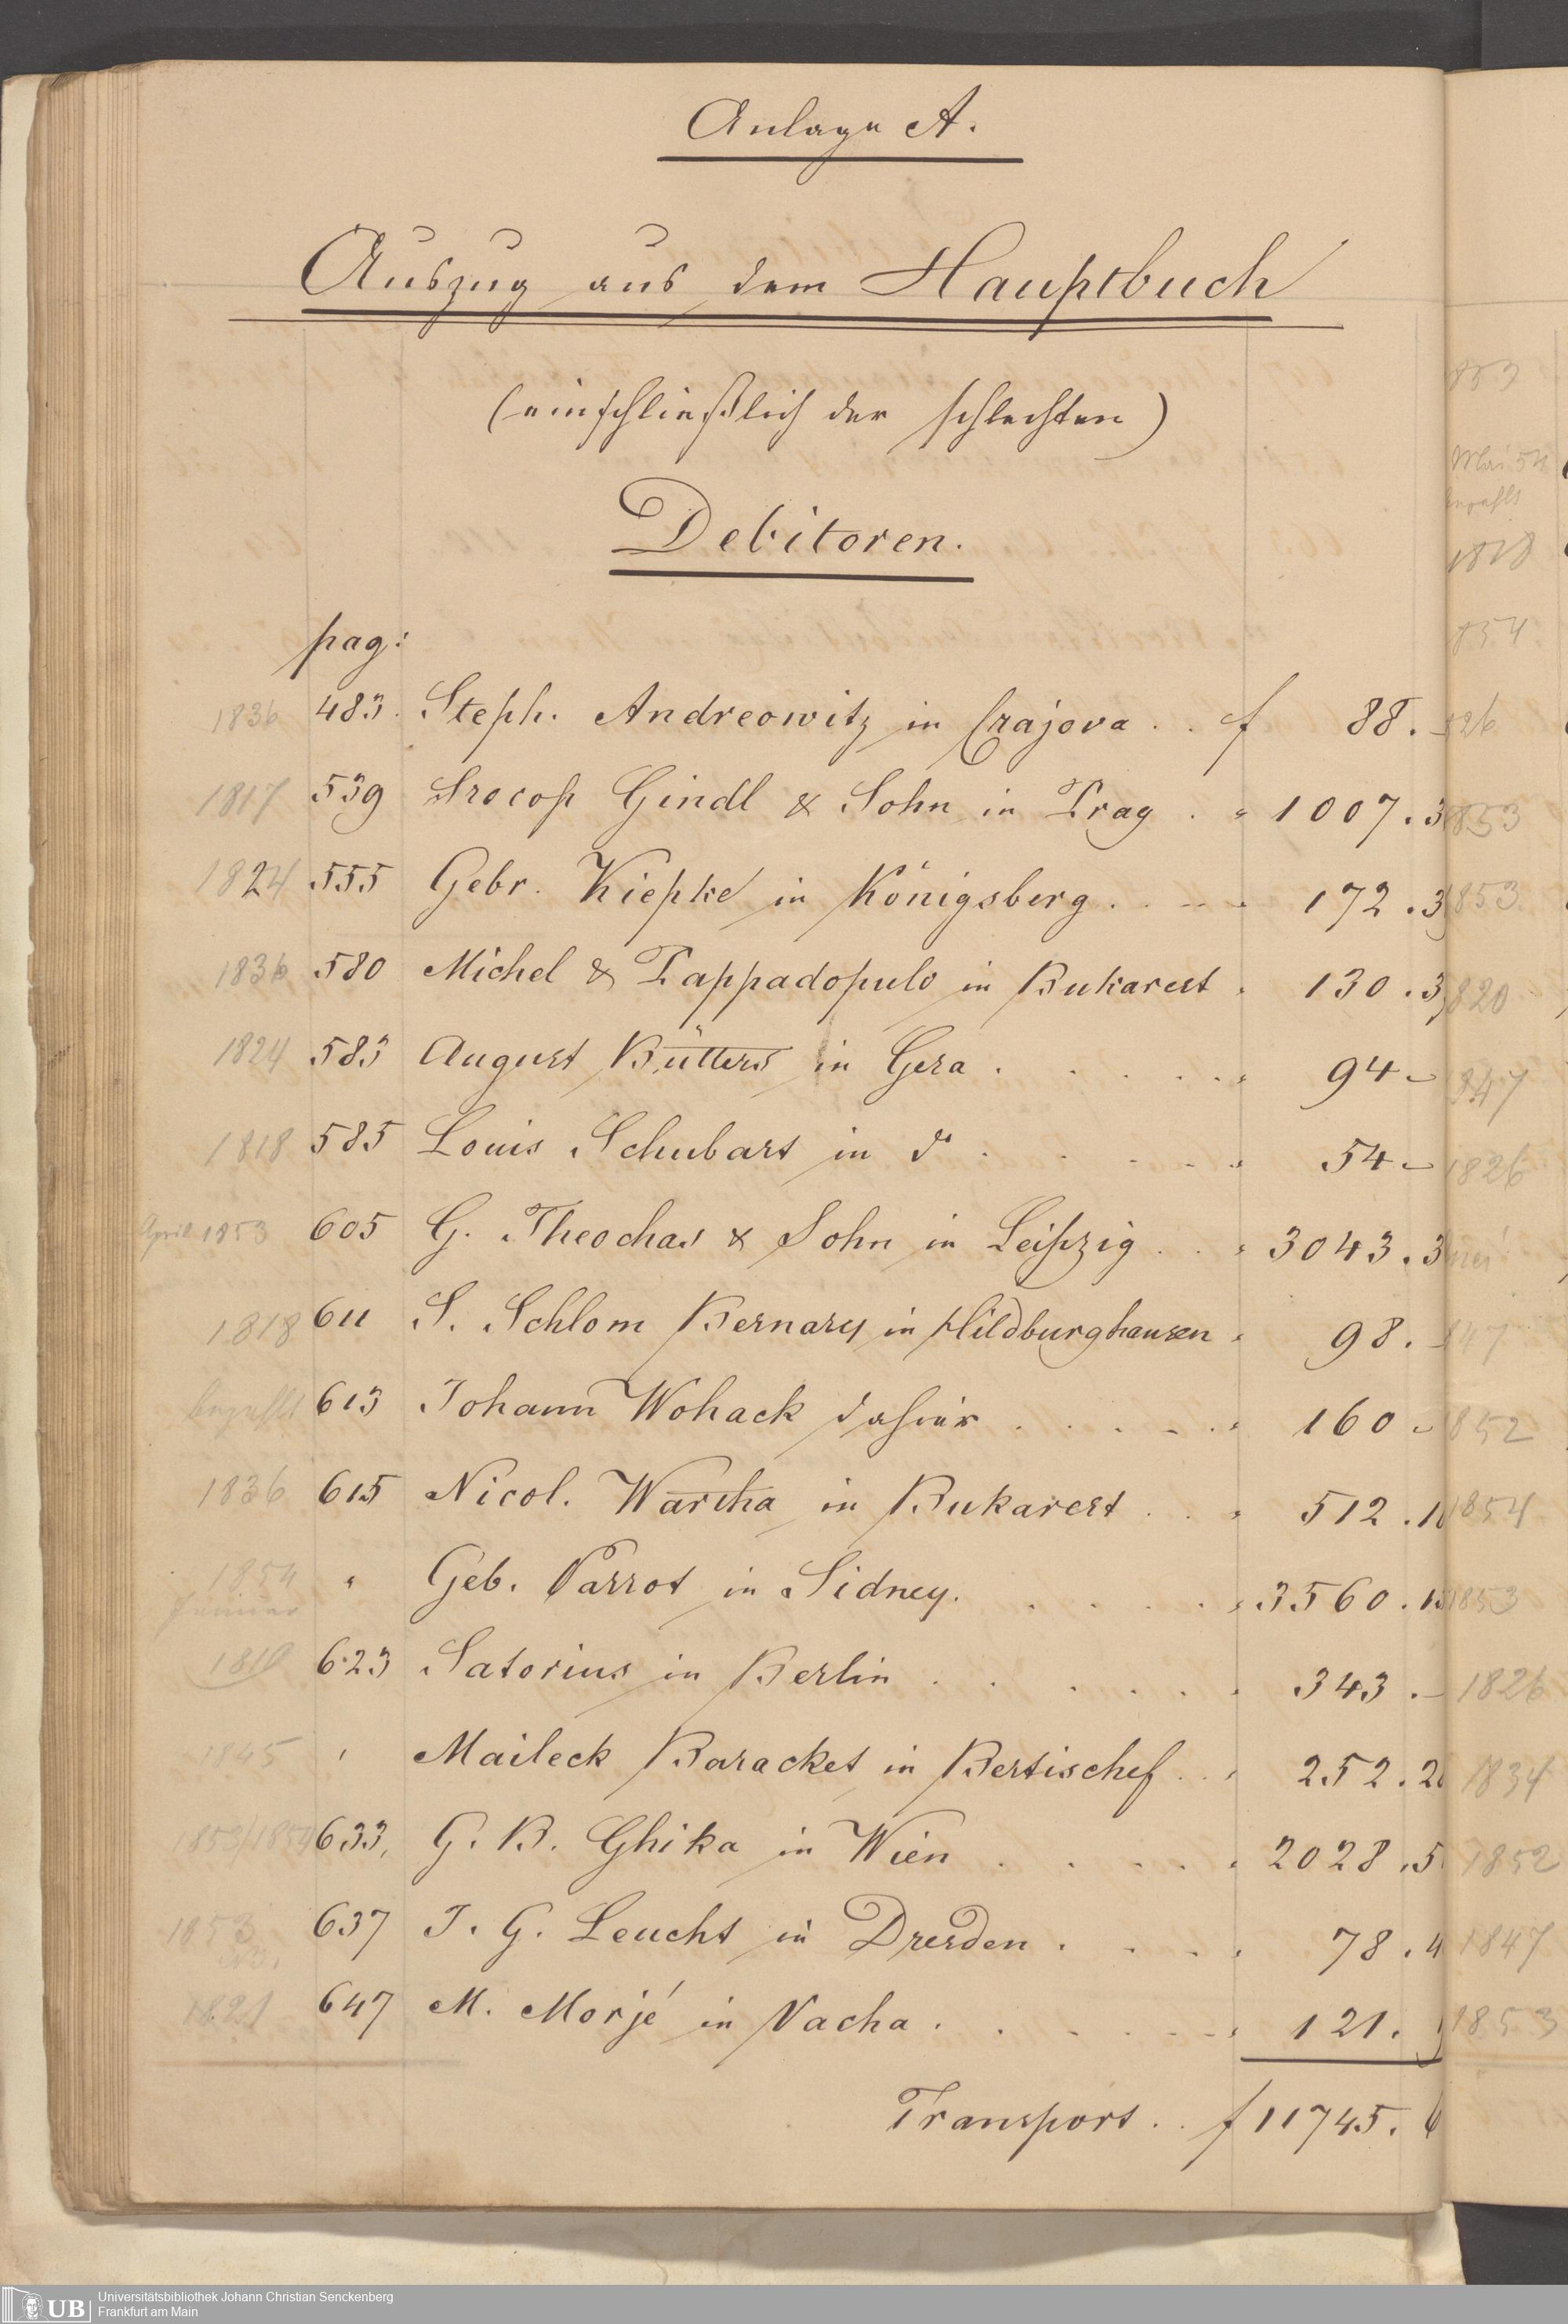 Anlage A.
Auszug aus dem Hauptbuch
(einschließlich der schlechten)
Debitoren.
pag:
1836 483. Steph. Andreowitz in Crajova . . f 88. –
1817 539 Procop Gindl & Sohn in Prag . " 1007. 3
1824 555 Gebr. Kiepke in Königsberg . . . . " 172. 3
1836 580 Michel & Pappadopulo in Bukarest " 130. 3
1824 583 August Bütters in Gera . . . . . " 94 –
1818 585 Louis Schubart in do . . . . . " 54 –
April 1853 605 G. Theochas & Sohn in Leipzig . . " 3043. 3
1818 611 S. Schlom Bernary in Hildburghausen " 98. –
bezahlt 613 Johann Wohack dahier . . . . . " 160 –
1836 615 Nicol. Wartha in Bukarest . . " 512. 1
1854 " Geb. Parrot in Sidney. . . . . " 3560. 1
Januar
1819 623 Satorius in Berlin . . . . . . " 343. –
1845 " Maileck Baracket in Bertischef . . " 252. 2
1853/1854 633, G. B. Ghika in Wien . . . . . " 2028. 5
1853 637 J. G. Leucht in Dresden . . . . " 78. 4
1821 647 M. Morjé in Vacha . . . . . " 121.
Transport . . f 11745. 6
1853
Mai 54
bezahlt
1818
1854
1826
1853
1853
1820
1847
1826
1847
1852
1854
1853
1826
1834
1852
1847
1853
UB
Universitätsbibliothek Johann Christian Senckenberg
Frankfurt am Main